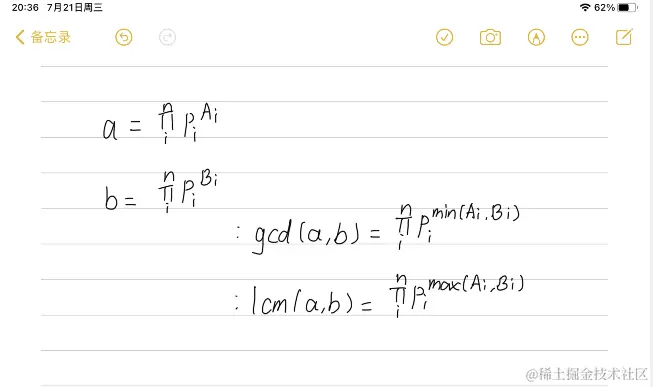 20:36 7月21日周三 62%
备忘录
a = ∏ᵢⁿ pᵢ^Ai
b = ∏ᵢⁿ pᵢ^Bi
: gcd(a,b) = ∏ᵢⁿ pᵢ^min(Ai,Bi)
: lcm(a,b) = ∏ᵢⁿ pᵢ^max(Ai,Bi)
@稀土掘金技术社区